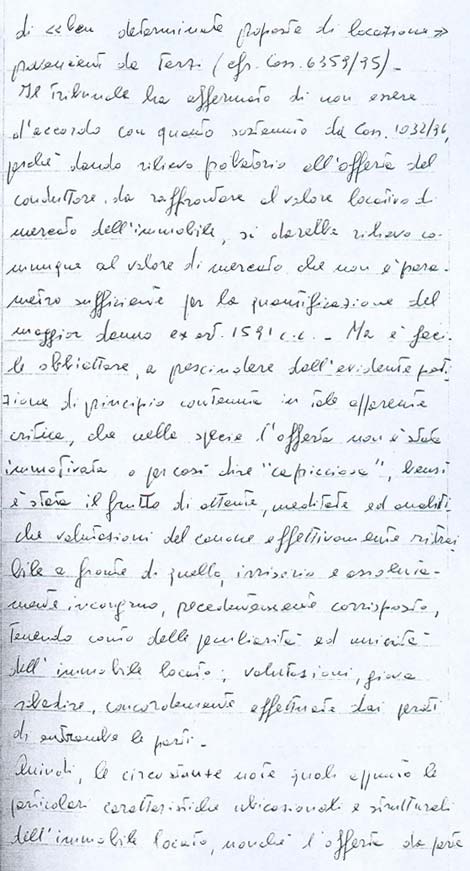 di «ben determinate proposte di locazione»
provenienti da terzi (cfr. Cass. 6359/95)_
Il Tribunale ha affermato di non essere
d'accordo con quanto sostenuto da Cass. 1032/96,
perché dando rilievo probatorio all'offerta del
conduttore, da raffrontare al valore locativo di
mercato dell'immobile, si darebbe rilievo co-
munque al valore di mercato che non è para-
metro sufficiente per la quantificazione del
maggior danno ex art. 1591 c.c. _ Ma è faci-
le obbiettare, a prescindere dall'evidente peti-
zione di principio contenuta in tale apparente
critica, che nella specie l'offerta non è stata
immotivata o per così dire "capricciosa", bensì
è stata il frutto di attente, meditate ed analiti-
che valutazioni del canone effettivamente ritrai-
bile a fronte di quello, irrisorio e assoluta-
mente incongruo, precedentemente corrisposto,
tenendo conto delle peculiarità ed unicità
dell'immobile locato; valutazioni, giova
ribadire, concordemente effettuate dai periti
di entrambe le parti._
Quindi, le circostanze note quali appunto le
particolari caratteristiche ubicazionali e strutturali
dell'immobile locato, nonché l'offerta da parte